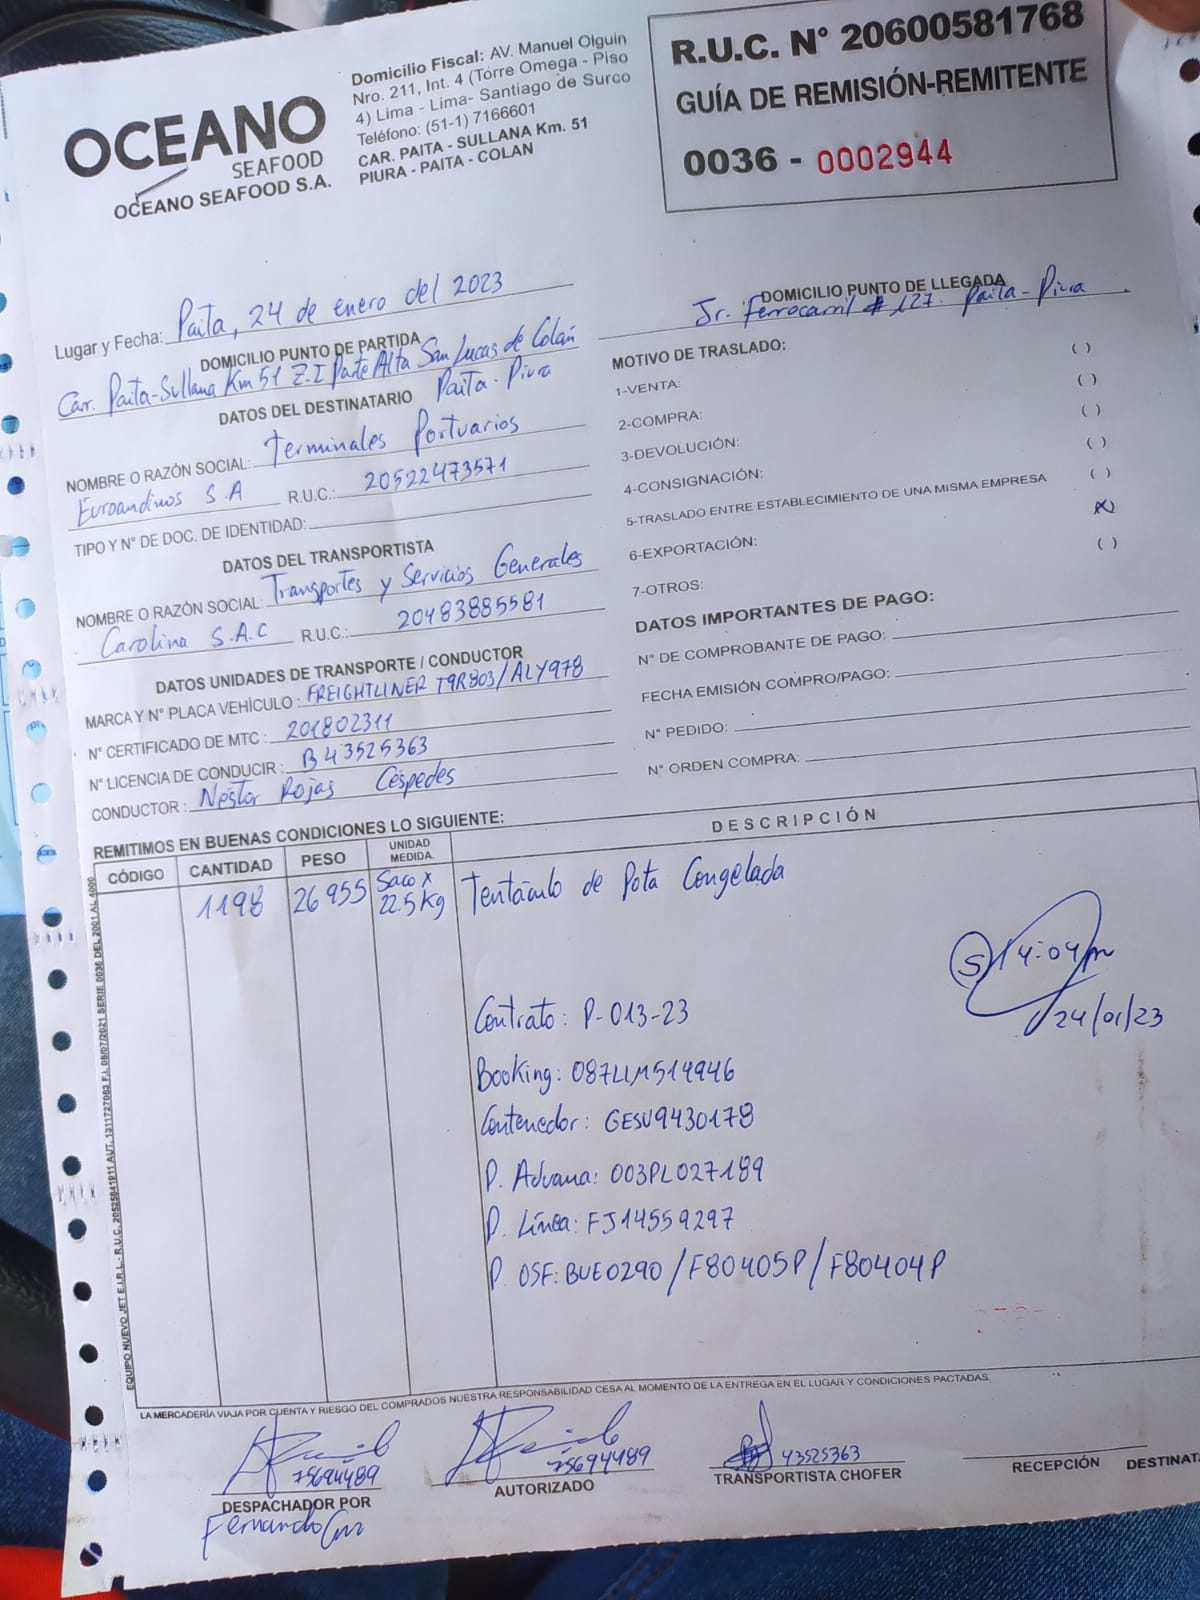 OCEANO
SEAFOOD
OCEANO SEAFOOD S.A.
Domicilio Fiscal: AV. Manuel Olguin
Nro. 211, Int. 4 (Torre Omega - Piso
4) Lima - Lima- Santiago de Surco
Teléfono: (51-1) 7166601
CAR. PAITA - SULLANA Km. 51
PIURA - PAITA - COLAN
R.U.C. N° 20600581768
GUÍA DE REMISIÓN-REMITENTE
0036 - 0002944
Lugar y Fecha: Paita, 24 de enero del 2023
DOMICILIO PUNTO DE PARTIDA
Car. Paita-Sullana Km 51 Z.I Parte Alta San Lucas de Colán
Paita - Piura
DOMICILIO PUNTO DE LLEGADA
Jr. Ferrocarril # 127. Paita - Piura
DATOS DEL DESTINATARIO
NOMBRE O RAZÓN SOCIAL: Terminales Portuarios
Euroandinos S.A R.U.C.: 20522473571
TIPO Y N° DE DOC. DE IDENTIDAD:
DATOS DEL TRANSPORTISTA
NOMBRE O RAZÓN SOCIAL: Transportes y Servicios Generales
Carolina S.A.C R.U.C.: 20483885581
DATOS UNIDADES DE TRANSPORTE / CONDUCTOR
MARCA Y N° PLACA VEHÍCULO: FREIGHTLINER T9R803/ALY978
N° CERTIFICADO DE MTC: 201802311
N° LICENCIA DE CONDUCIR: B43525363
CONDUCTOR: Néstor Rojas Céspedes
MOTIVO DE TRASLADO:
1-VENTA: ( )
2-COMPRA: ( )
3-DEVOLUCIÓN: ( )
4-CONSIGNACIÓN: ( )
5-TRASLADO ENTRE ESTABLECIMIENTO DE UNA MISMA EMPRESA ( )
6-EXPORTACIÓN: (X)
7-OTROS: ( )
DATOS IMPORTANTES DE PAGO:
N° DE COMPROBANTE DE PAGO:
FECHA EMISIÓN COMPRO/PAGO:
N° PEDIDO:
N° ORDEN COMPRA:
REMITIMOS EN BUENAS CONDICIONES LO SIGUIENTE:
CÓDIGO CANTIDAD PESO UNIDAD MEDIDA. DESCRIPCIÓN
1198 26955 Saco x 22.5 Kg Tentáculo de Pota Congelada
S 14:04pm
24/01/23
Contrato: P-013-23
Booking: 087LIM514946
Contenedor: GESU9430178
P. Aduana: 003PL027189
P. Línea: FJ14559297
P. OSF: BUE0290/F80405P/F80404P
EQUIPO NUEVO JET E.I.R.L. - R.U.C. 20525841911 AUT. 1311727083 F.I. 08/07/2021 SERIE 0036 DEL 2001 AL 4000
LA MERCADERÍA VIAJA POR CUENTA Y RIESGO DEL COMPRADOS NUESTRA RESPONSABILIDAD CESA AL MOMENTO DE LA ENTREGA EN EL LUGAR Y CONDICIONES PACTADAS.
75694489
DESPACHADOR POR
Fernando Cruz
75694489
AUTORIZADO
43525363
TRANSPORTISTA CHOFER
RECEPCIÓN DESTINATA